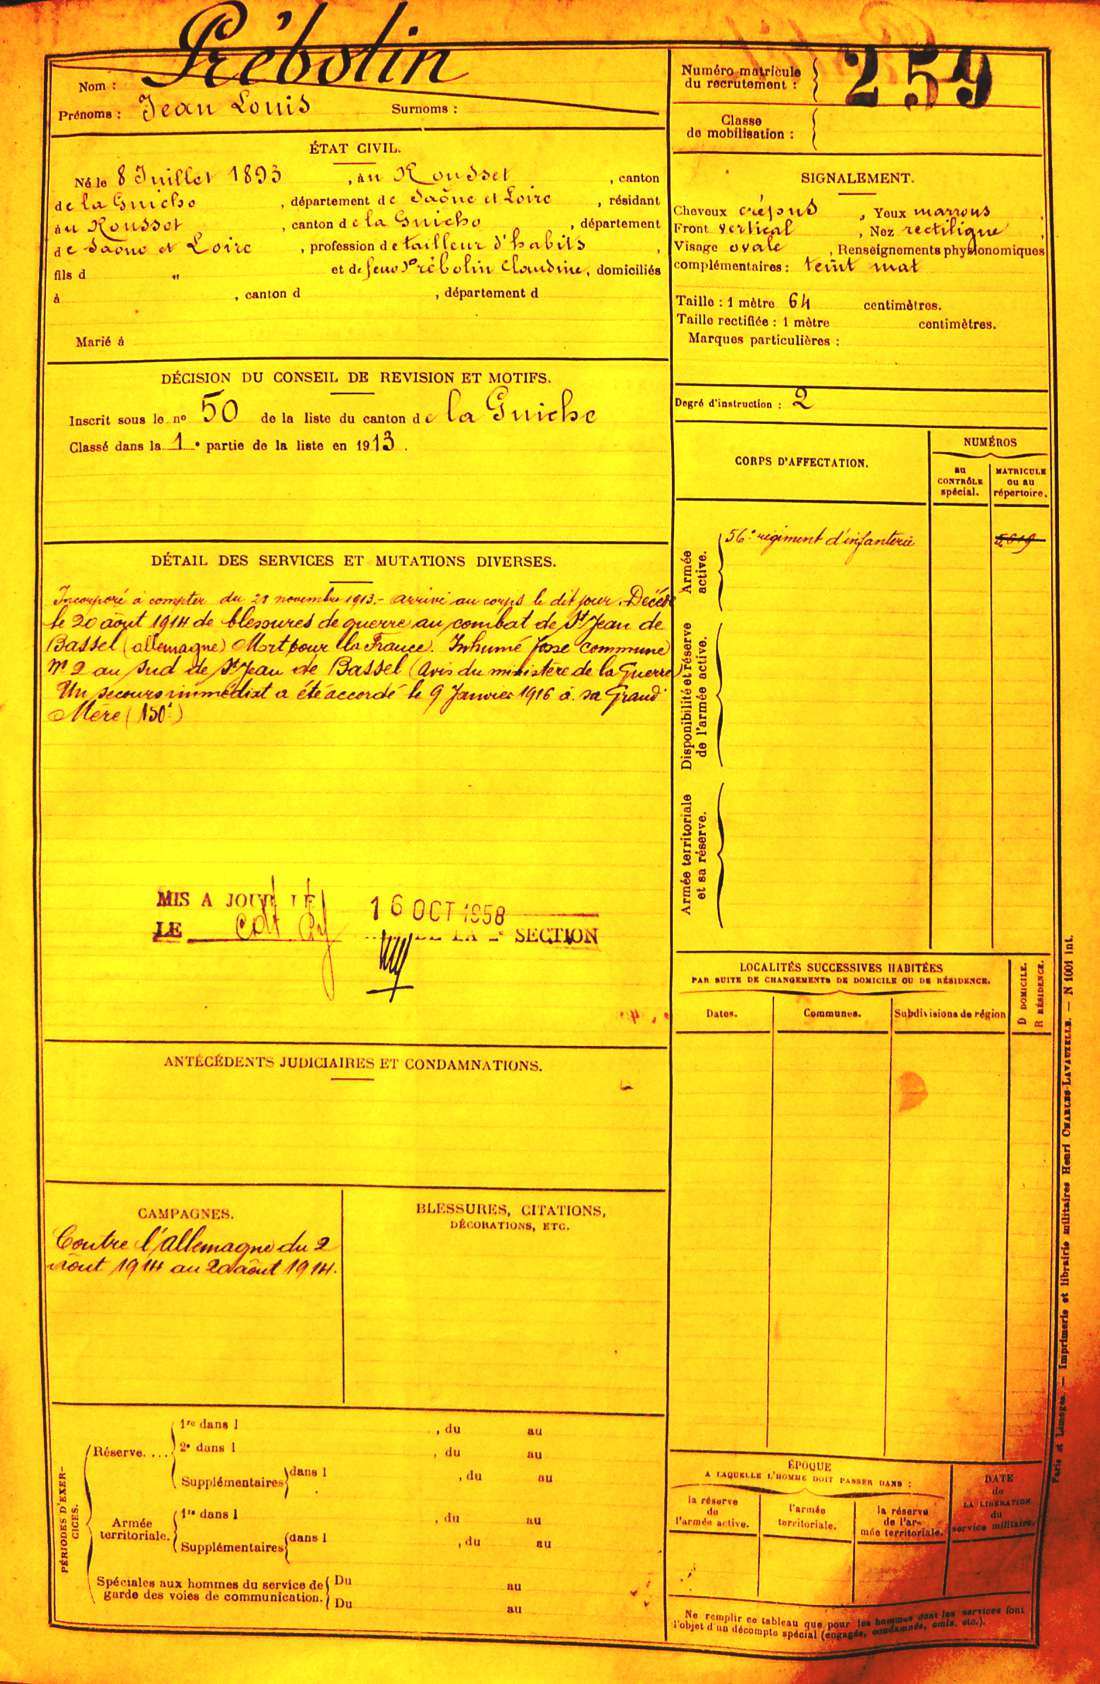 Nom : Prébolin
Prénoms : Jean Louis Surnoms :
ÉTAT CIVIL.
Né le 8 Juillet 1893, au Rousset, canton
de la Guiche, département de Saône et Loire, résidant
au Rousset, canton de la Guiche, département
de Saône et Loire, profession de tailleur d'habits,
fils d " et de feue Prébolin Claudine, domiciliés
à , canton d , département d
Marié à
DÉCISION DU CONSEIL DE REVISION ET MOTIFS.
Inscrit sous le nº 50 de la liste du canton de la Guiche
Classé dans la 1e partie de la liste en 1913.
DÉTAIL DES SERVICES ET MUTATIONS DIVERSES.
Incorporé à compter du novembre 1913.- arrivé au corps le dit jour. Décédé
le 20 août 1914 de blessures de guerre au combat de St Jean de
Bassel (allemagne) Mort pour la France. Inhumé fosse commune
Nº 2 au sud de St Jean de Bassel (Avis du ministère de la Guerre)
Un secours immédiat a été accordé le 9 Janvier 1916 à sa Grand
Mère (150f)
MIS A JOUR LE
16 OCT 1958
LE DE LA SECTION
ANTÉCÉDENTS JUDICIAIRES ET CONDAMNATIONS.
CAMPAGNES.
Contre l'allemagne du 2
août 1914 au 20 août 1914.
BLESSURES, CITATIONS,
DÉCORATIONS, ETC.
PÉRIODES D'EXER-
CICES.
Réserve....
1re dans l , du au
2e dans l , du au
Supplémentaires dans l , du au
Armée
territoriale.
1re dans l , du au
Supplémentaires dans l , du au
Spéciales aux hommes du service de
garde des voies de communication.
Du au
Du au
Numéro matricule
du recrutement : 259
Classe
de mobilisation :
SIGNALEMENT.
Cheveux crépus, Yeux marrons,
Front vertical, Nez rectiligne,
Visage ovale, Renseignements physionomiques
complémentaires : teint mat
Taille : 1 mètre 64 centimètres.
Taille rectifiée : 1 mètre centimètres.
Marques particulières :
Degré d'instruction : 2
CORPS D'AFFECTATION.
NUMÉROS
au
CONTRÔLE
spécial.
MATRICULE
ou au
répertoire.
Armée
active.
56e régiment d'infanterie
Disponibilité et réserve
de l'armée active.
Armée territoriale
et sa réserve.
LOCALITÉS SUCCESSIVES HABITÉES
PAR SUITE DE CHANGEMENTS DE DOMICILE OU DE RÉSIDENCE.
Dates.
Communes.
Subdivisions de région
D DOMICILE.
R RÉSIDENCE.
ÉPOQUE
A LAQUELLE L'HOMME DOIT PASSER DANS :
la réserve
de
l'armée active.
l'armée
territoriale.
la réserve
de l'ar-
mée territoriale.
DATE
de
LA LIBÉRATION
du
service militaire.
Ne remplir ce tableau que pour les hommes dont les services font
l'objet d'un décompte spécial (engagés, condamnés, omis, etc.).
Paris et Limoges. — Imprimerie et librairie militaires Henri CHARLES-LAVAUZELLE. — N 1001 int.